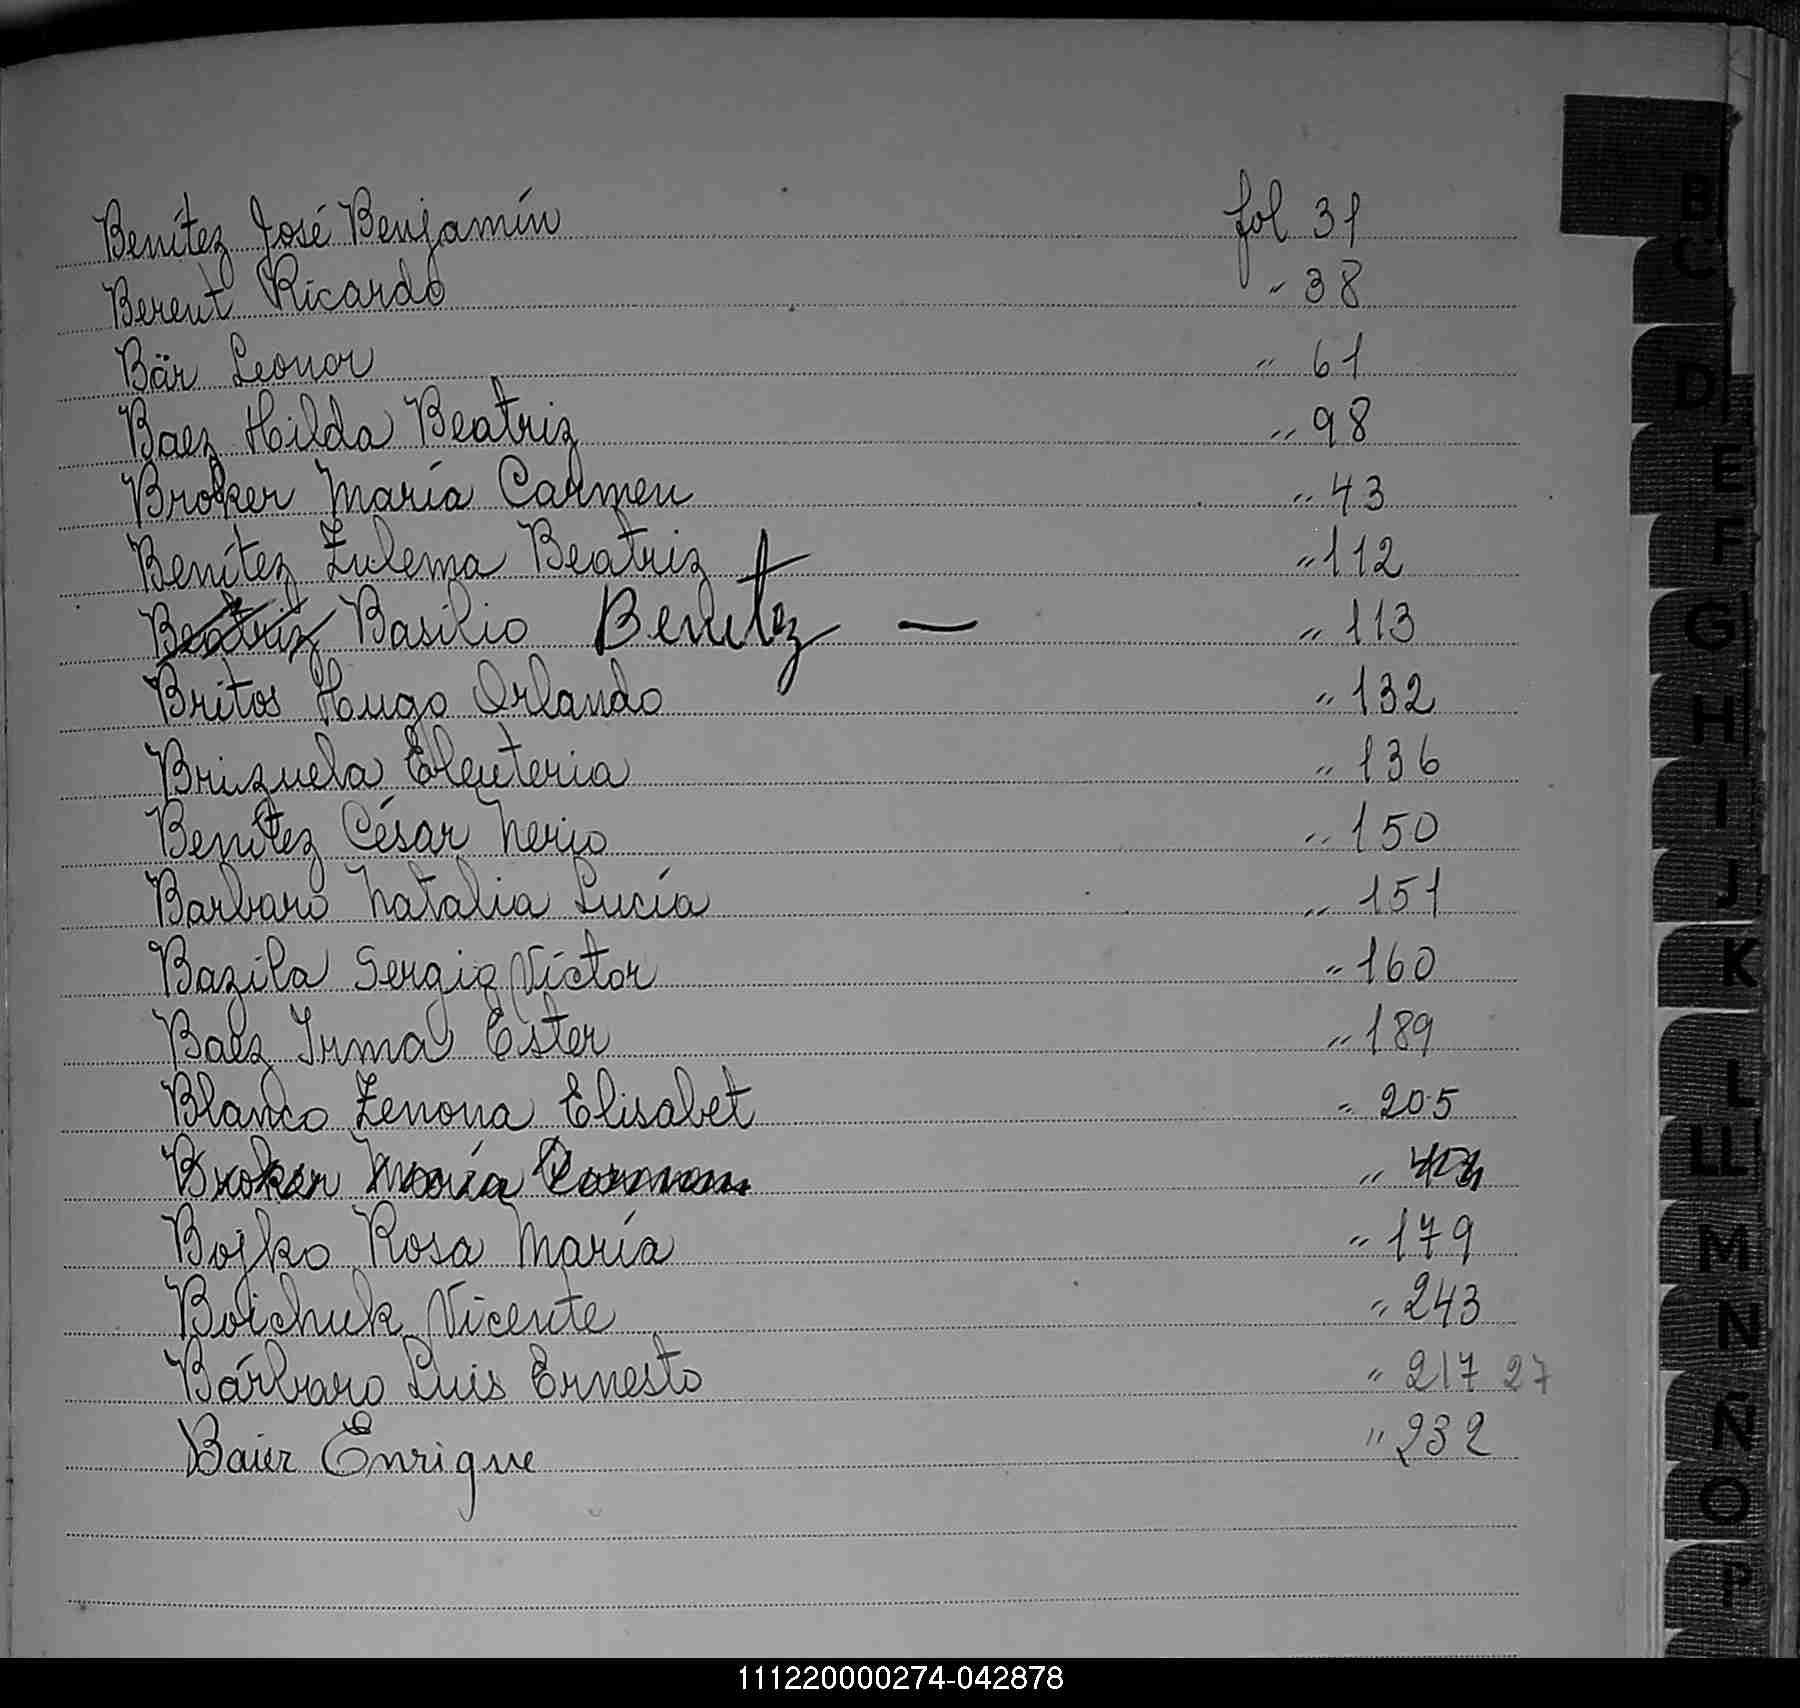 Benítez José Benjamín fol 31
Berent Ricardo " 38
Bär Leonor " 61
Baez Hilda Beatriz " 98
Broker María Carmen " 43
Benítez Zulema Beatriz " 112
Beatriz Basilio Benitez — " 113
Britos Hugo Orlando " 132
Brizuela Eleuteria " 136
Benítez César Nerio " 150
Barbaro Natalia Lucía " 151
Bazila Sergio Víctor " 160
Baez Irma Ester " 189
Blanco Zenona Elisabet " 205
Broker María Carmen "
Bojko Rosa María " 179
Boichuk Vicente " 243
Bárbaro Luis Ernesto " 217 27
Baier Enrique " 232
B
C
D
E
F
G
H
I
J
K
L
LL
M
N
Ñ
O
P
111220000274-042878